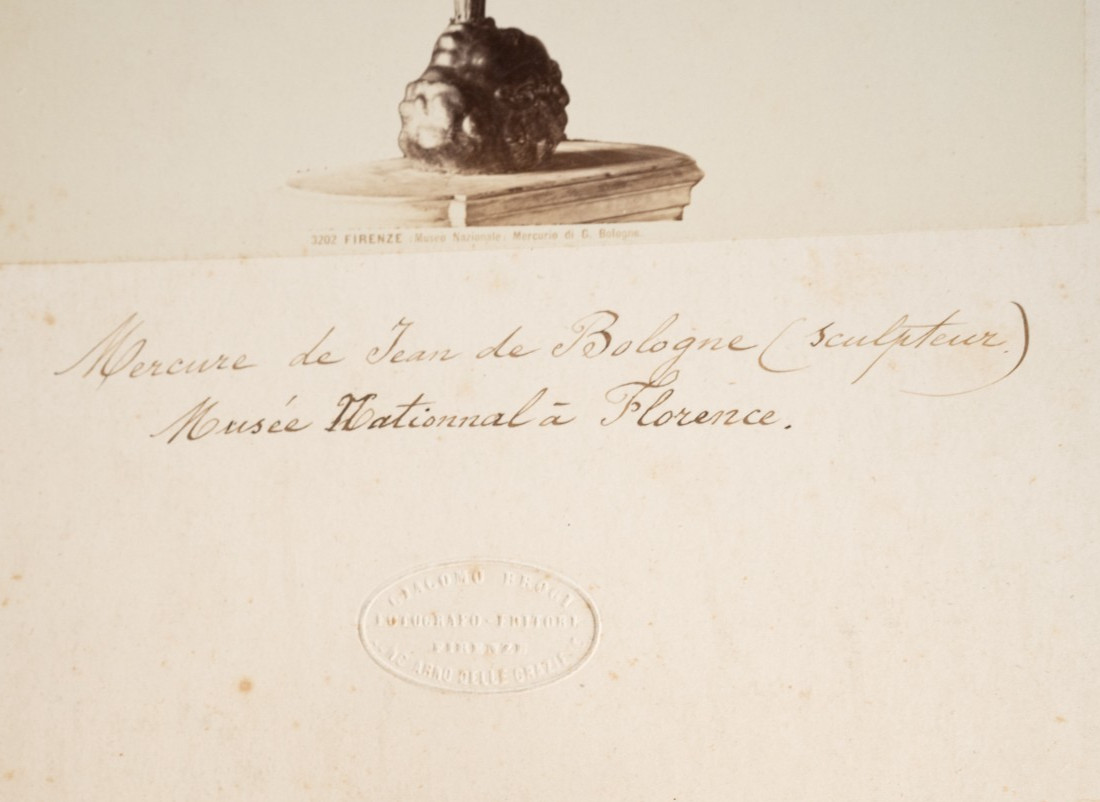 3202 FIRENZE (Museo Nazionale) Mercurio di G. Bologna
Mercure de Jean de Bologne (sculpteur)
Musée Nationnal à Florence.
GIACOMO BROGI
FOTOGRAFO-EDITORE
FIRENZE
ARNO DELLE GRAZIE